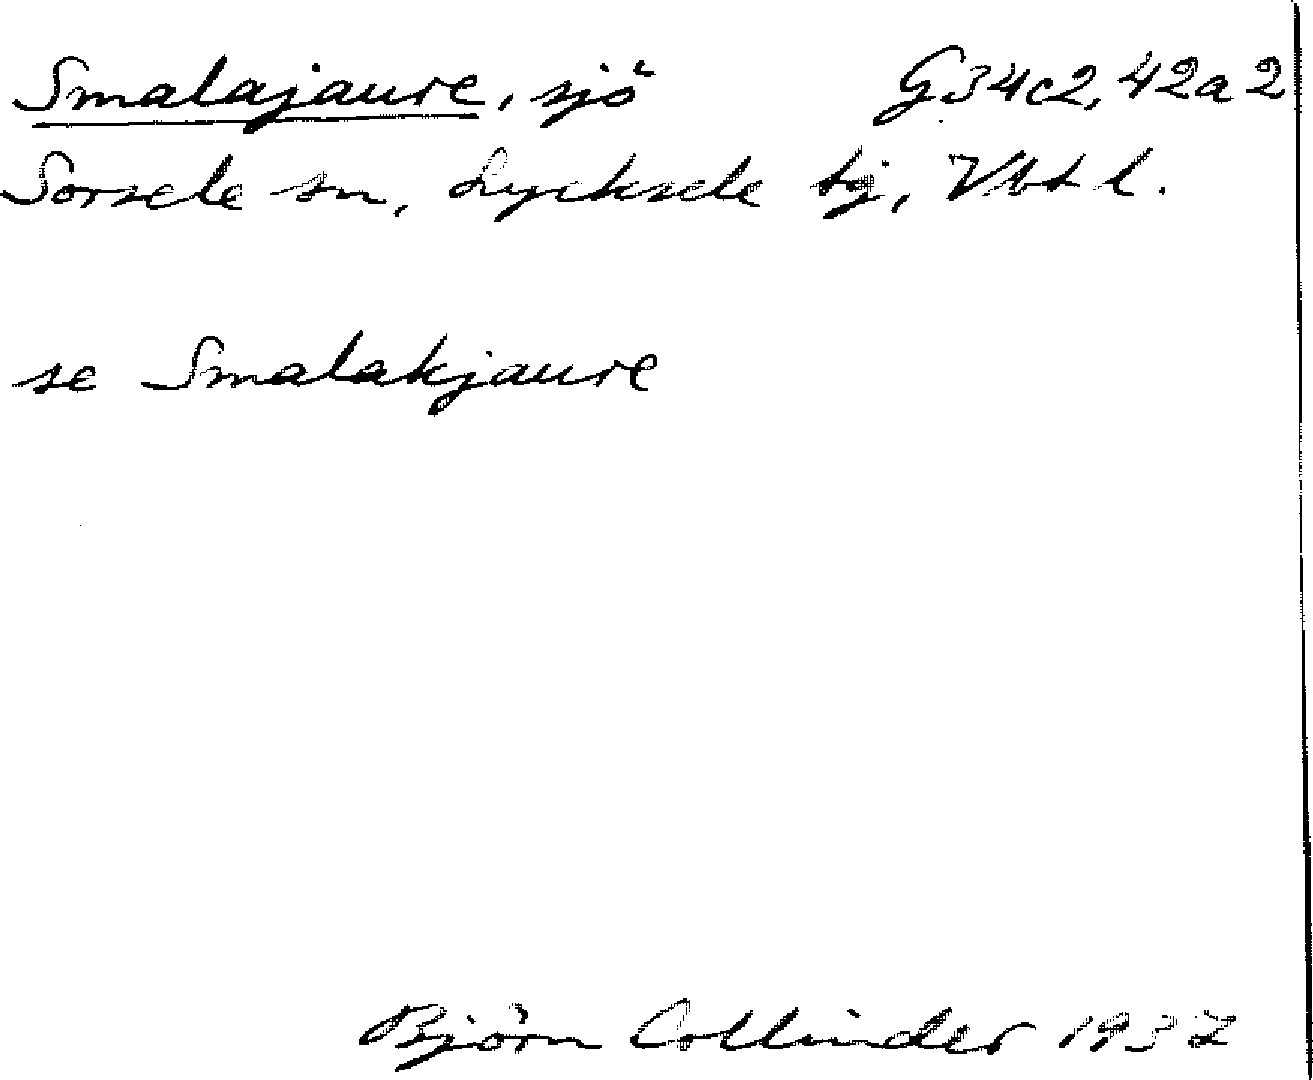 Smalajaure, sjö G34c2, 42a2
Sorsele sn, Lycksele tg, Vbt l.
se Smalakjaure
Björn Collinder 1937